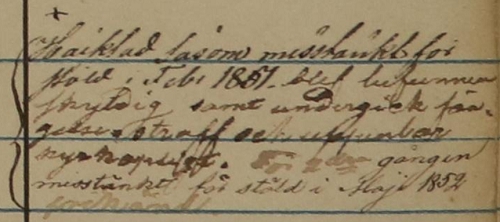 Häcktad såsom misstänkt för
stöld i Feb: 1851. blef befunnen
skyldig samt undergick fän-
gelse straff och uppenbar
kyrkoplikt. gången
misstänkt för stöld i Maj 1852